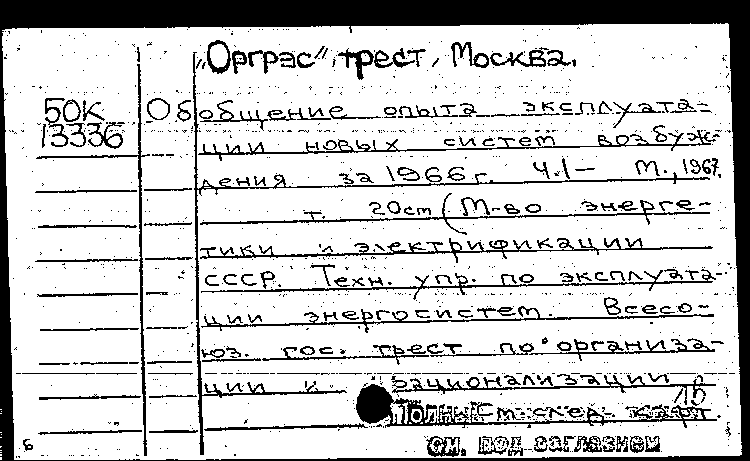 „Оргрэс“, трест, Москва.
50К Об общение опыта эксплуата-
13336 ции новых систем возбуж-
дения за 1966 г. Ч.1 — М., 1967.
т. 20 cm (М-во энерге-
тики и электрификации
СССР. Техн. упр. по эксплуата-
ции энергосистем. Всесо-
юз. гос. трест по организа-
ции и рационализации
см. след. карт.
см. под заглавием
Б